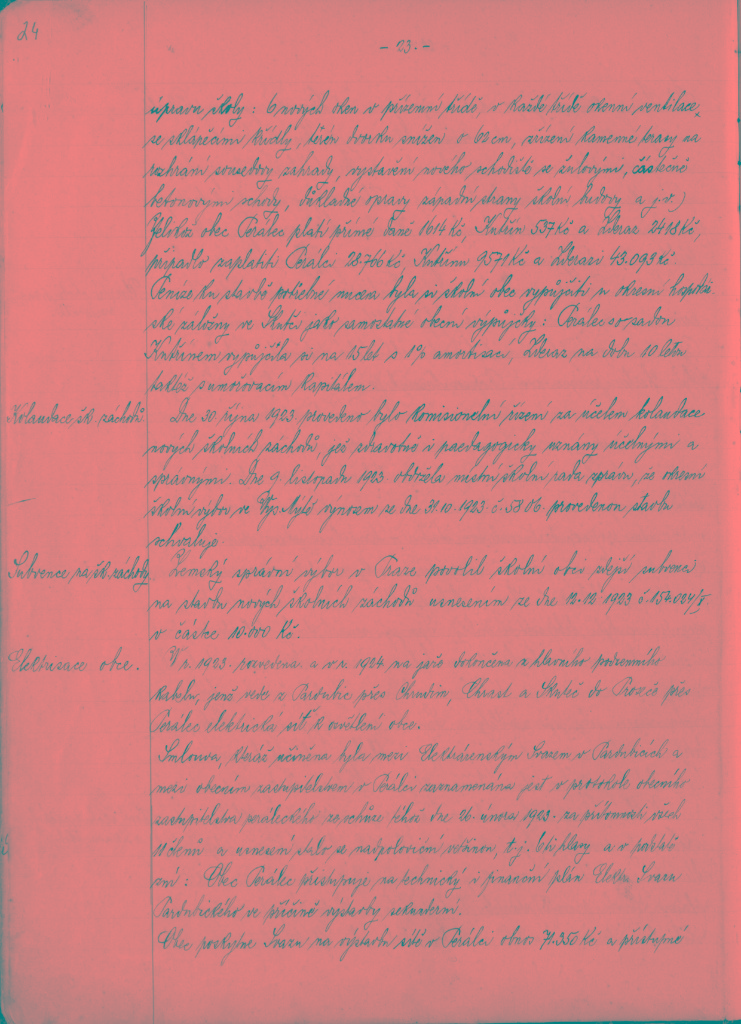 24
- 23. -
úpravu školy: 6 nových oken v přízemní třídě, v každé třídě okenní ventilace,
se sklápěcími křídly, terén dvorku snížen o 60 cm, zřízení kamenné terasy na
rozhraní sousedovy zahrady, vystavění nového schodiště se žulovými, částečně
betonovými schody, důkladné opravy západní strany školní budovy a j. v.)
Jelikož obec Perálec platí přímé daně 1614 Kč, Kutřín 537 Kč a Zderaz 2418 Kč,
připadlo zaplatiti Perálci 28.766 Kč, Kutřínu 9571 Kč a Zderazi 43.093 Kč.
Peníze ku stavbě potřebné musela by si školní obec vypůjčiti u okresní hospodář-
ské záložny ve Skutči jako samostatné obecní výpůjčky: Perálec s osadou
Kutřínem vypůjčila si na 15 let s 1% amortisací, Zderaz na dobu 10 letou
taktéž s umořovacím kapitálem.
Kolaudace šk. záchodů.
Dne 30. října 1923 provedeno bylo komisionelní řízení za účelem kolaudace
nových školních záchodů, jež zdravotně i paedagogicky uznány účelnými a
správnými. Dne 9. listopadu 1923 obdržela místní školní rada zprávu, že okresní
školní výbor ve Vys. Mýtě výnosem ze dne 31. 10. 1923 č. 5806. provedenou stavbu
schvaluje.
Subvence na šk. záchody.
Zemský správní výbor v Praze povolil školní obci zdejší subvenci
na stavbu nových školních záchodů usnesením ze dne 12. 12. 1923 č. 154.024/V
v částce 10.000 Kč.
Elektrisace obce.
V r. 1923. rozvedena a v r. 1924 na jaře dokončena z hlavního podzemního
kabelu, jenž vede z Pardubic přes Chrudim, Chrast a Skuteč do Proseče přes
Perálec elektrická síť k osvětlení obce.
Smlouva, kteráž učiněna byla mezi Elektrárenským Svazem v Pardubicích a
mezi obecním zastupitelstvem v Perálci zaznamenána jest v protokole obecního
zastupitelstva peráleckého ze schůze téhož dne 26. února 1923. za přítomnosti všech
11 členů a usnesení stalo se nadpoloviční většinou, t. j. 6ti hlasy a v podstatě
zní: Obec Perálec přistupuje na technický i finanční plán Elektr. Svazu
Pardubického ve příčině výstavby sekunderní.
Obec poskytne Svazu na výstavbu sítě v Perálci obnos 71.350 Kč a přístupné